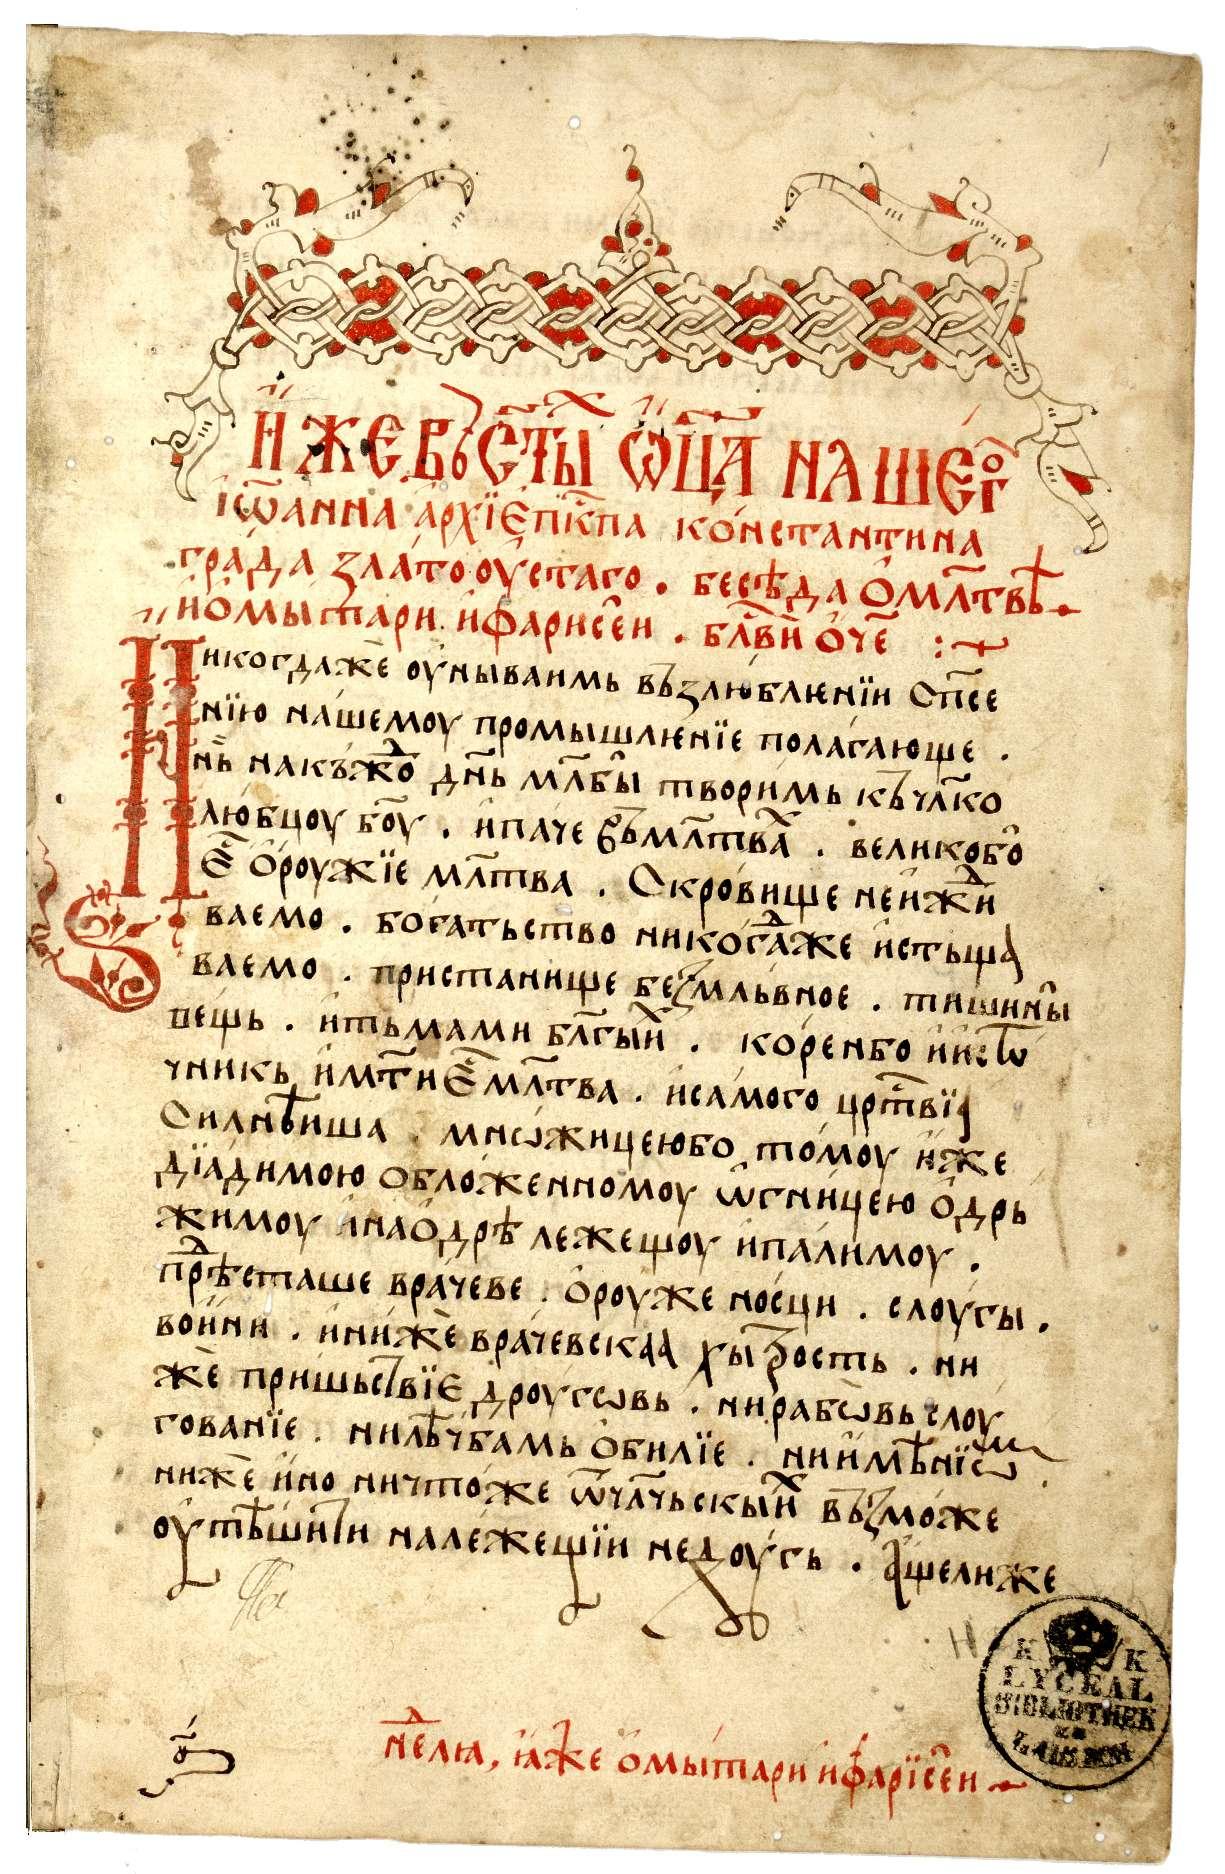 И҆́же въ ст҃ы́хъ ѿц҃а нашего
і҆ѡ҃анна а҆рхїе҆пкⷭ҇па ко́нстантина
гра́да зла́тооу҆стаго . бесѣ́да о҆ мл҃твѣ .
и҆ ѡ҆ мытари и҆ фарисе́и . бл҃ви́ ѻ҆́ч҃е :~
Никогдаже̏ оу҆ныва́имь въꙁлю́блꙗ҆нїи сп҃се
нїю на́шемоу промышлꙗ́нїе пола́гающе .
нь̏ на къ́жⷣо дн҃ь мл҃бы твори́мь къ чл҃ко
лю́бцоу бо҃у . и҆ па́че въ мл҃твахь . вели́ко бо̀
е҆сⷭ҇ ѻ҆роу́жїе мл҃тва . Скро́вище неи҆жⷣи
ва́емо . бога́тьство никогⷣа́же и҆стьща
ва́емо . пристанище беꙁмль́вное . тишины̀
вещь . и҆ тьмами бл҃гыⷯи . ко́рень бо и҆ и҆сто
чникь и҆ мт҃и е҆сⷭ҇ мл҃тва . и҆ са́мого црⷭ҇твїа
Силнѣиша . мно́жицею бо то́моу и҆́же
дїа́димою о҆бло́женномоу ѡ҆гни́цею ѻ҆дрь
жи́моу и҆ на ѻ҆дрѣ̀ леже́щоу и҆ пали́моу .
прⷣѣсташе вра́чеве . ѻ҆роу́же но́сци . слоу́гы .
вои́ни . и҆ ни́же̏ вра́чевскаа хы́трость . ни
же̏ при́шьствїе дроу́говь . ни рабѡ́вь слоу
гова́нїе . ни лѣ́чбамь ѻ҆би́лїе . ни и҆мѣ́нїѡмь
ниже̏ и҆но ничто́же ѿ чл҃чьскыⷯи въꙁмо́же
оу҆тѣ́шити належещїи не́доугь . А҆́ще ли же
нⷣелꙗ, ꙗ҆́же ѻ҆ мы́тари и҆ фарїсе́и
K K
LYCEAL
BIBLIOTHEK
ZU
LAIBACH